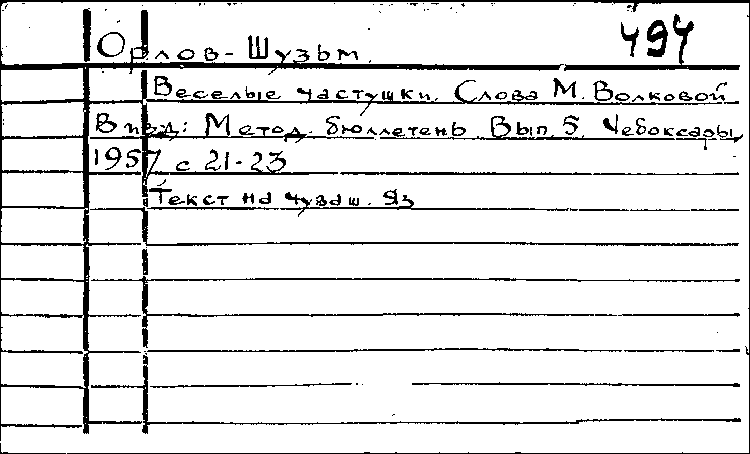 494
Орлов-Шузьм.
Веселые частушки. Слова М. Волковой
В изд: Метод. бюллетень Вып. 5. Чебоксары,
1957 с 21-23
Текст на чуваш. яз